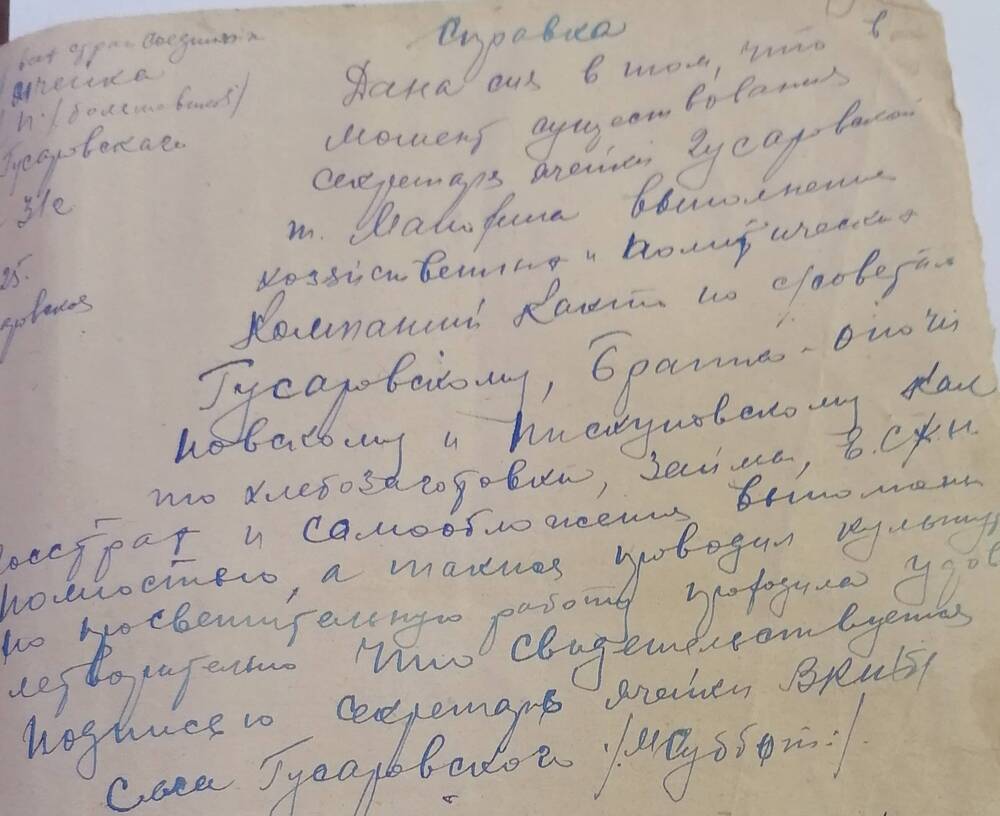 Справка
ячейка
/большевиков/
Гусаровскаго
31 г
25.
Дана сия в том, что в
момент существования
секретаря ячейки Гусаровской
т. выполнение
хозяйственных и политических
Компаний как то по с/советам
Гусаровскому, Братко-
новскому и Пискуновскому как
то хлебозаготовки, займа,
Госстрах и самообложения выполнены
полностью, а также проводил культур
но просветительную работу проходила удов
летворительно что свидетельствуется
подписею секретарь ячейки ВКП/б/
Села Гусаровского /: :/